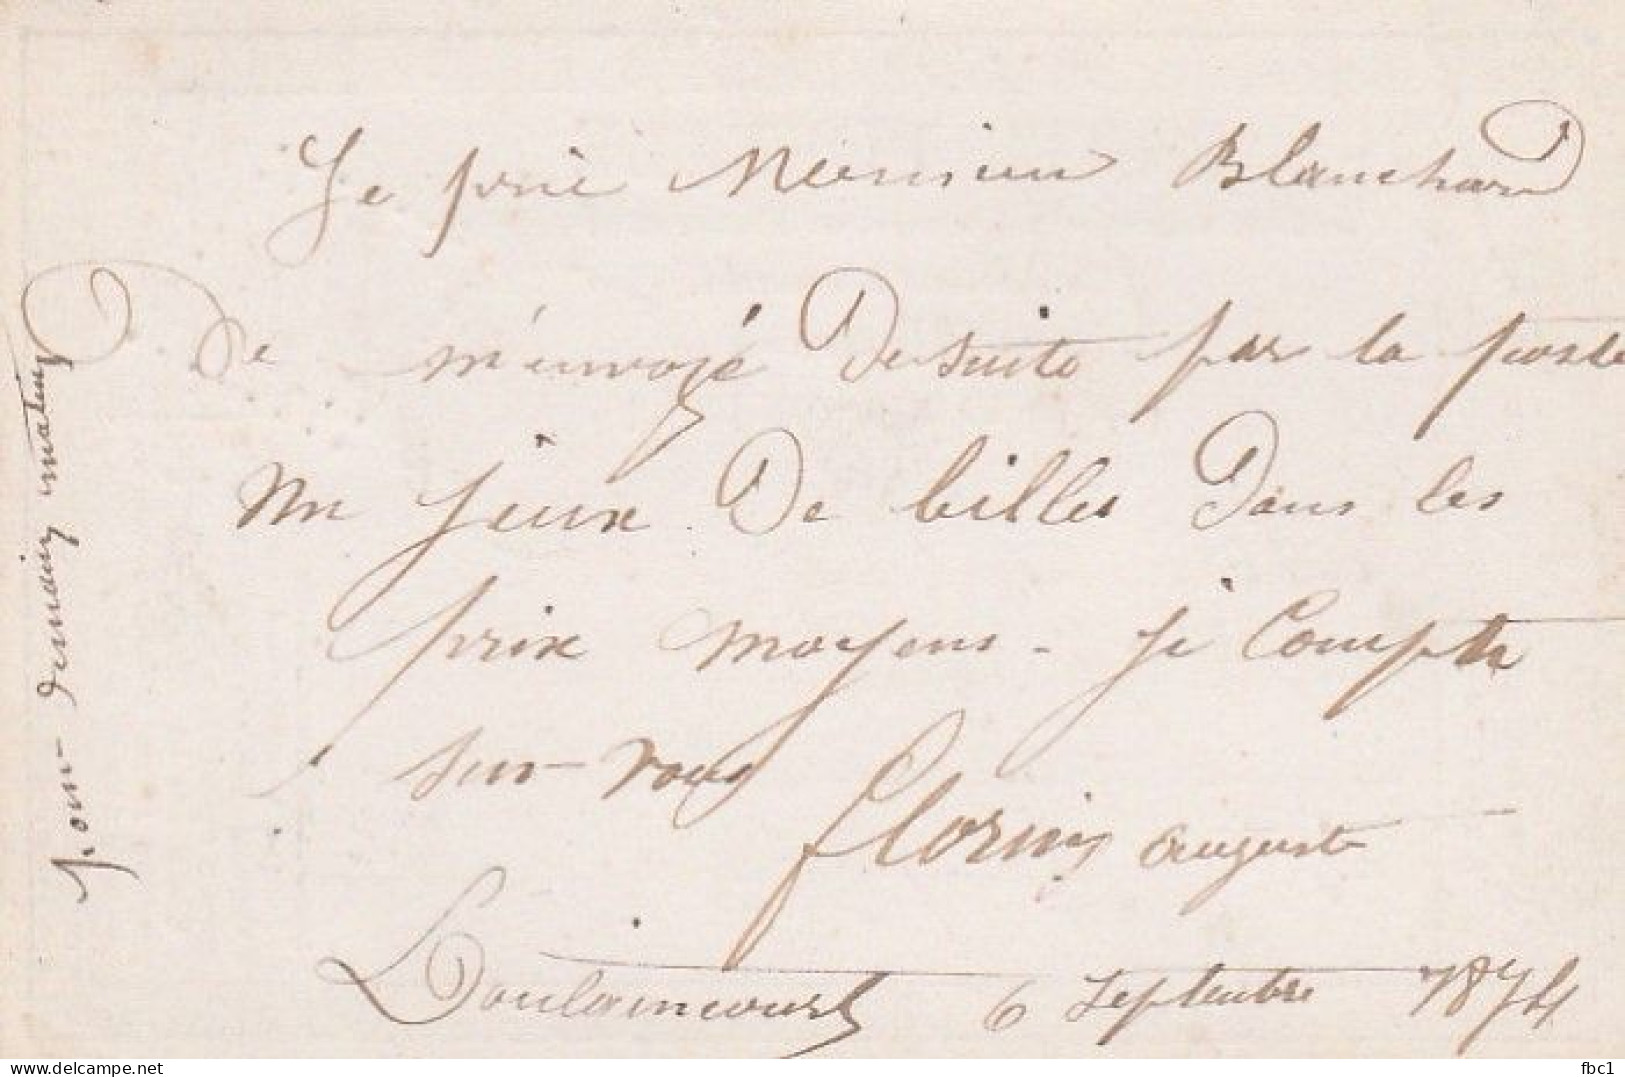 Je prie Monsieur Blanchard
De m'envoyé Desuite par la poste
un jeux De billes Dans les
prix moyens - je Compte
sur vous
auguste
Doulaincourt 6 Septembre 1874
pour demain matin
delcampe.net
fbc1